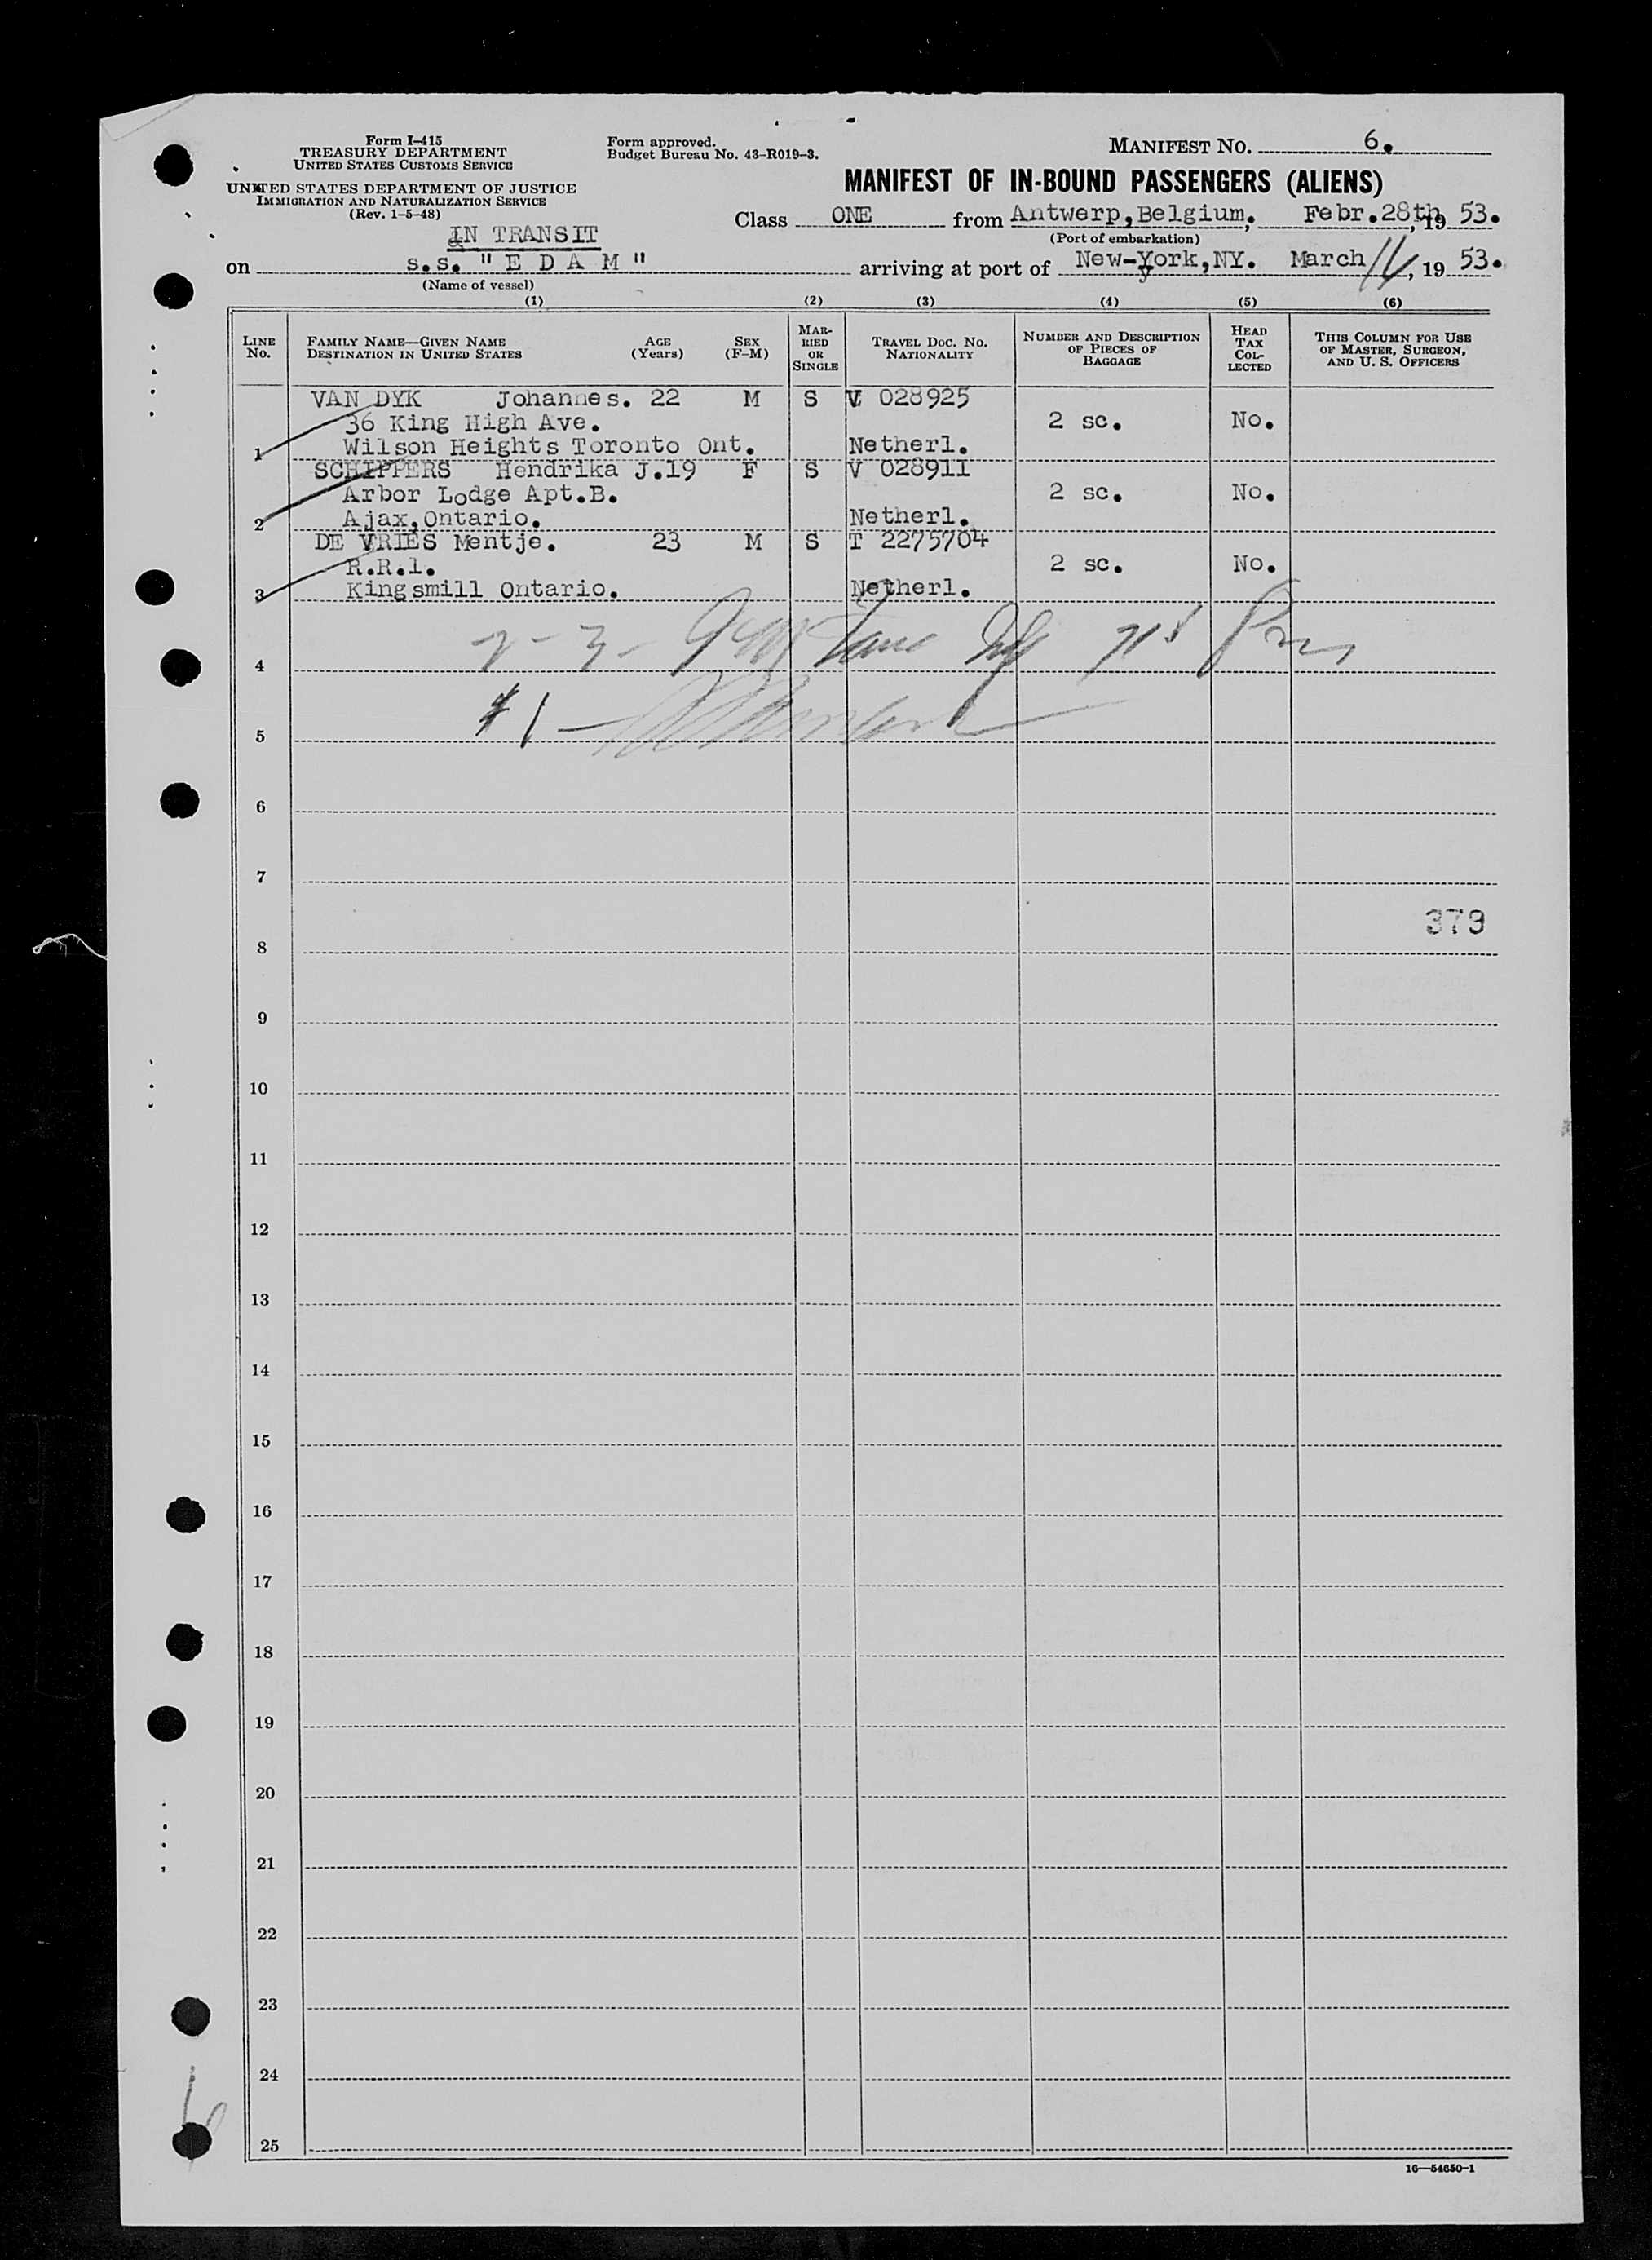 Form I-415
TREASURY DEPARTMENT
UNITED STATES CUSTOMS SERVICE
UNITED STATES DEPARTMENT OF JUSTICE
IMMIGRATION AND NATURALIZATION SERVICE
(Rev. 1-5-48)
Form approved.
Budget Bureau No. 43-R019-3.
MANIFEST NO. 6.
MANIFEST OF IN-BOUND PASSENGERS (ALIENS)
Class ONE from Antwerp, Belgium, Febr. 28th, 19 53.
(Port of embarkation)
IN TRANSIT
on s.s. "E D A M" arriving at port of New-York, NY. March 11, 19 53.
(Name of vessel)
(1) (2) (3) (4) (5) (6)
LINE No. FAMILY NAME—GIVEN NAME DESTINATION IN UNITED STATES AGE (Years) SEX (F-M) MARRIED OR SINGLE TRAVEL DOC. NO. NATIONALITY NUMBER AND DESCRIPTION OF PIECES OF BAGGAGE HEAD TAX COLLECTED THIS COLUMN FOR USE OF MASTER, SURGEON, AND U. S. OFFICERS
VAN DYK Johannes. 22 M S V 028925
36 King High Ave. 2 sc. No.
1 Wilson Heights Toronto Ont. Netherl.
SCHIPPERS Hendrika J. 19 F S V 028911
Arbor Lodge Apt.B. 2 sc. No.
2 Ajax, Ontario. Netherl.
DE VRIES Mentje. 23 M S T 2275704
R.R.1. 2 sc. No.
3 Kingsmill Ontario. Netherl.
2-3-
4
#1-
5
6
7
379
8
9
10
11
12
13
14
15
16
17
18
19
20
21
22
23
24
6
25
16—54650-1